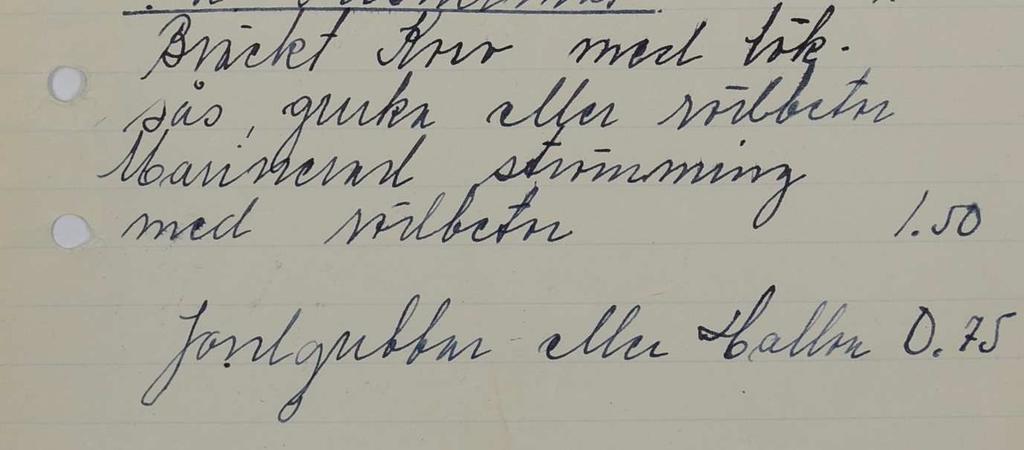 Bräckt Korv med lök-
sås, gurka eller rödbetor
Marinerad strömming
med rödbetor 1.50
Jordgubbar eller Hallon 0.75